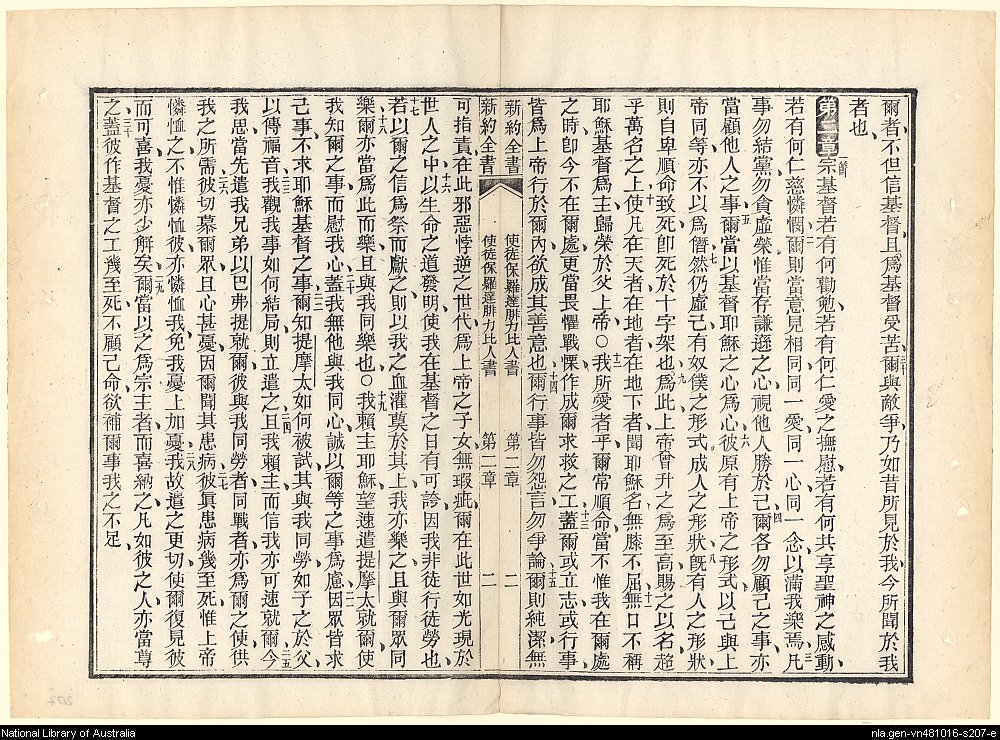 爾者、不但信基督且爲基督受苦爾與敵爭乃如昔所見於我今所聞於我
三十
者也
第二章宗基督若有何勸勉若有何仁愛之撫慰若有何共享聖神之感動
一節
若有何仁慈憐憫爾則當意見相同同一愛同一心同一念以滿我樂焉凡
二 三
事勿結黨勿貪虛榮惟當存謙遜之心視他人勝於己爾各勿顧己之事亦
四
當顧他人之事爾當以基督耶穌之心爲心彼原有上帝之形式以己與上
五 六
帝同等亦不以爲僭然仍虛己有奴僕之形式成人之形狀既有人之形狀
七 八
則自卑順命致死卽死於十字架也爲此上帝曾升之爲至高賜之以名超
九
乎萬名之上使凡在天者在地者在地下者聞耶穌名無膝不屈無口不稱
十 十一
耶穌基督爲主歸榮於父上帝〇我所愛者乎爾常順命當不惟我在爾處
十二
之時卽今不在爾處更當畏懼戰慄作成爾求救之工蓋爾或立志或行事
十三
皆爲上帝行於爾內欲成其善意也爾行事皆勿怨言勿爭論爾則純潔無
十四 十五
新約全書 使徒保羅達腓力比人書 第二章 二
新約全書 使徒保羅達腓力比人書 第二章 二
可指責在此邪惡悖逆之世代爲上帝之子女無瑕疵爾在此世如光現於
世人之中以生命之道發明使我在基督之日有可誇因我非徒行徒勞也
十六
若以爾之信爲祭而獻之則以我之血灌奠於其上我亦樂之且與爾眾同
十七
樂爾亦當爲此而樂且與我同樂也〇我賴主耶穌望速遣提摩太就爾使
十八 十九
我知爾之事而慰我心蓋我無他與我同心誠以爾等之事爲慮因眾皆求
二十 二一
己事不求耶穌基督之事爾知提摩太如何被試其與我同勞如子之於父
二二
以傳福音我觀我事如何結局則立遣之且我賴主而信我亦可速就爾今
二三 二四 二五
我思當先遣我兄弟以巴弗提就爾彼與我同勞者同戰者亦爲爾之使供
我之所需彼切慕爾眾且心甚憂因爾聞其患病彼眞患病幾至死惟上帝
二六 二七
憐恤之不惟憐恤彼亦憐恤我免我憂上加憂我故遣之更切使爾復見彼
二八
而可喜我憂亦少解矣爾當以之爲宗主者而喜納之凡如彼之人亦當尊
二九
之蓋彼作基督之工幾至死不顧己命欲補爾事我之不足
三十
207
National Library of Australia
nla.gen-vn481016-s207-e